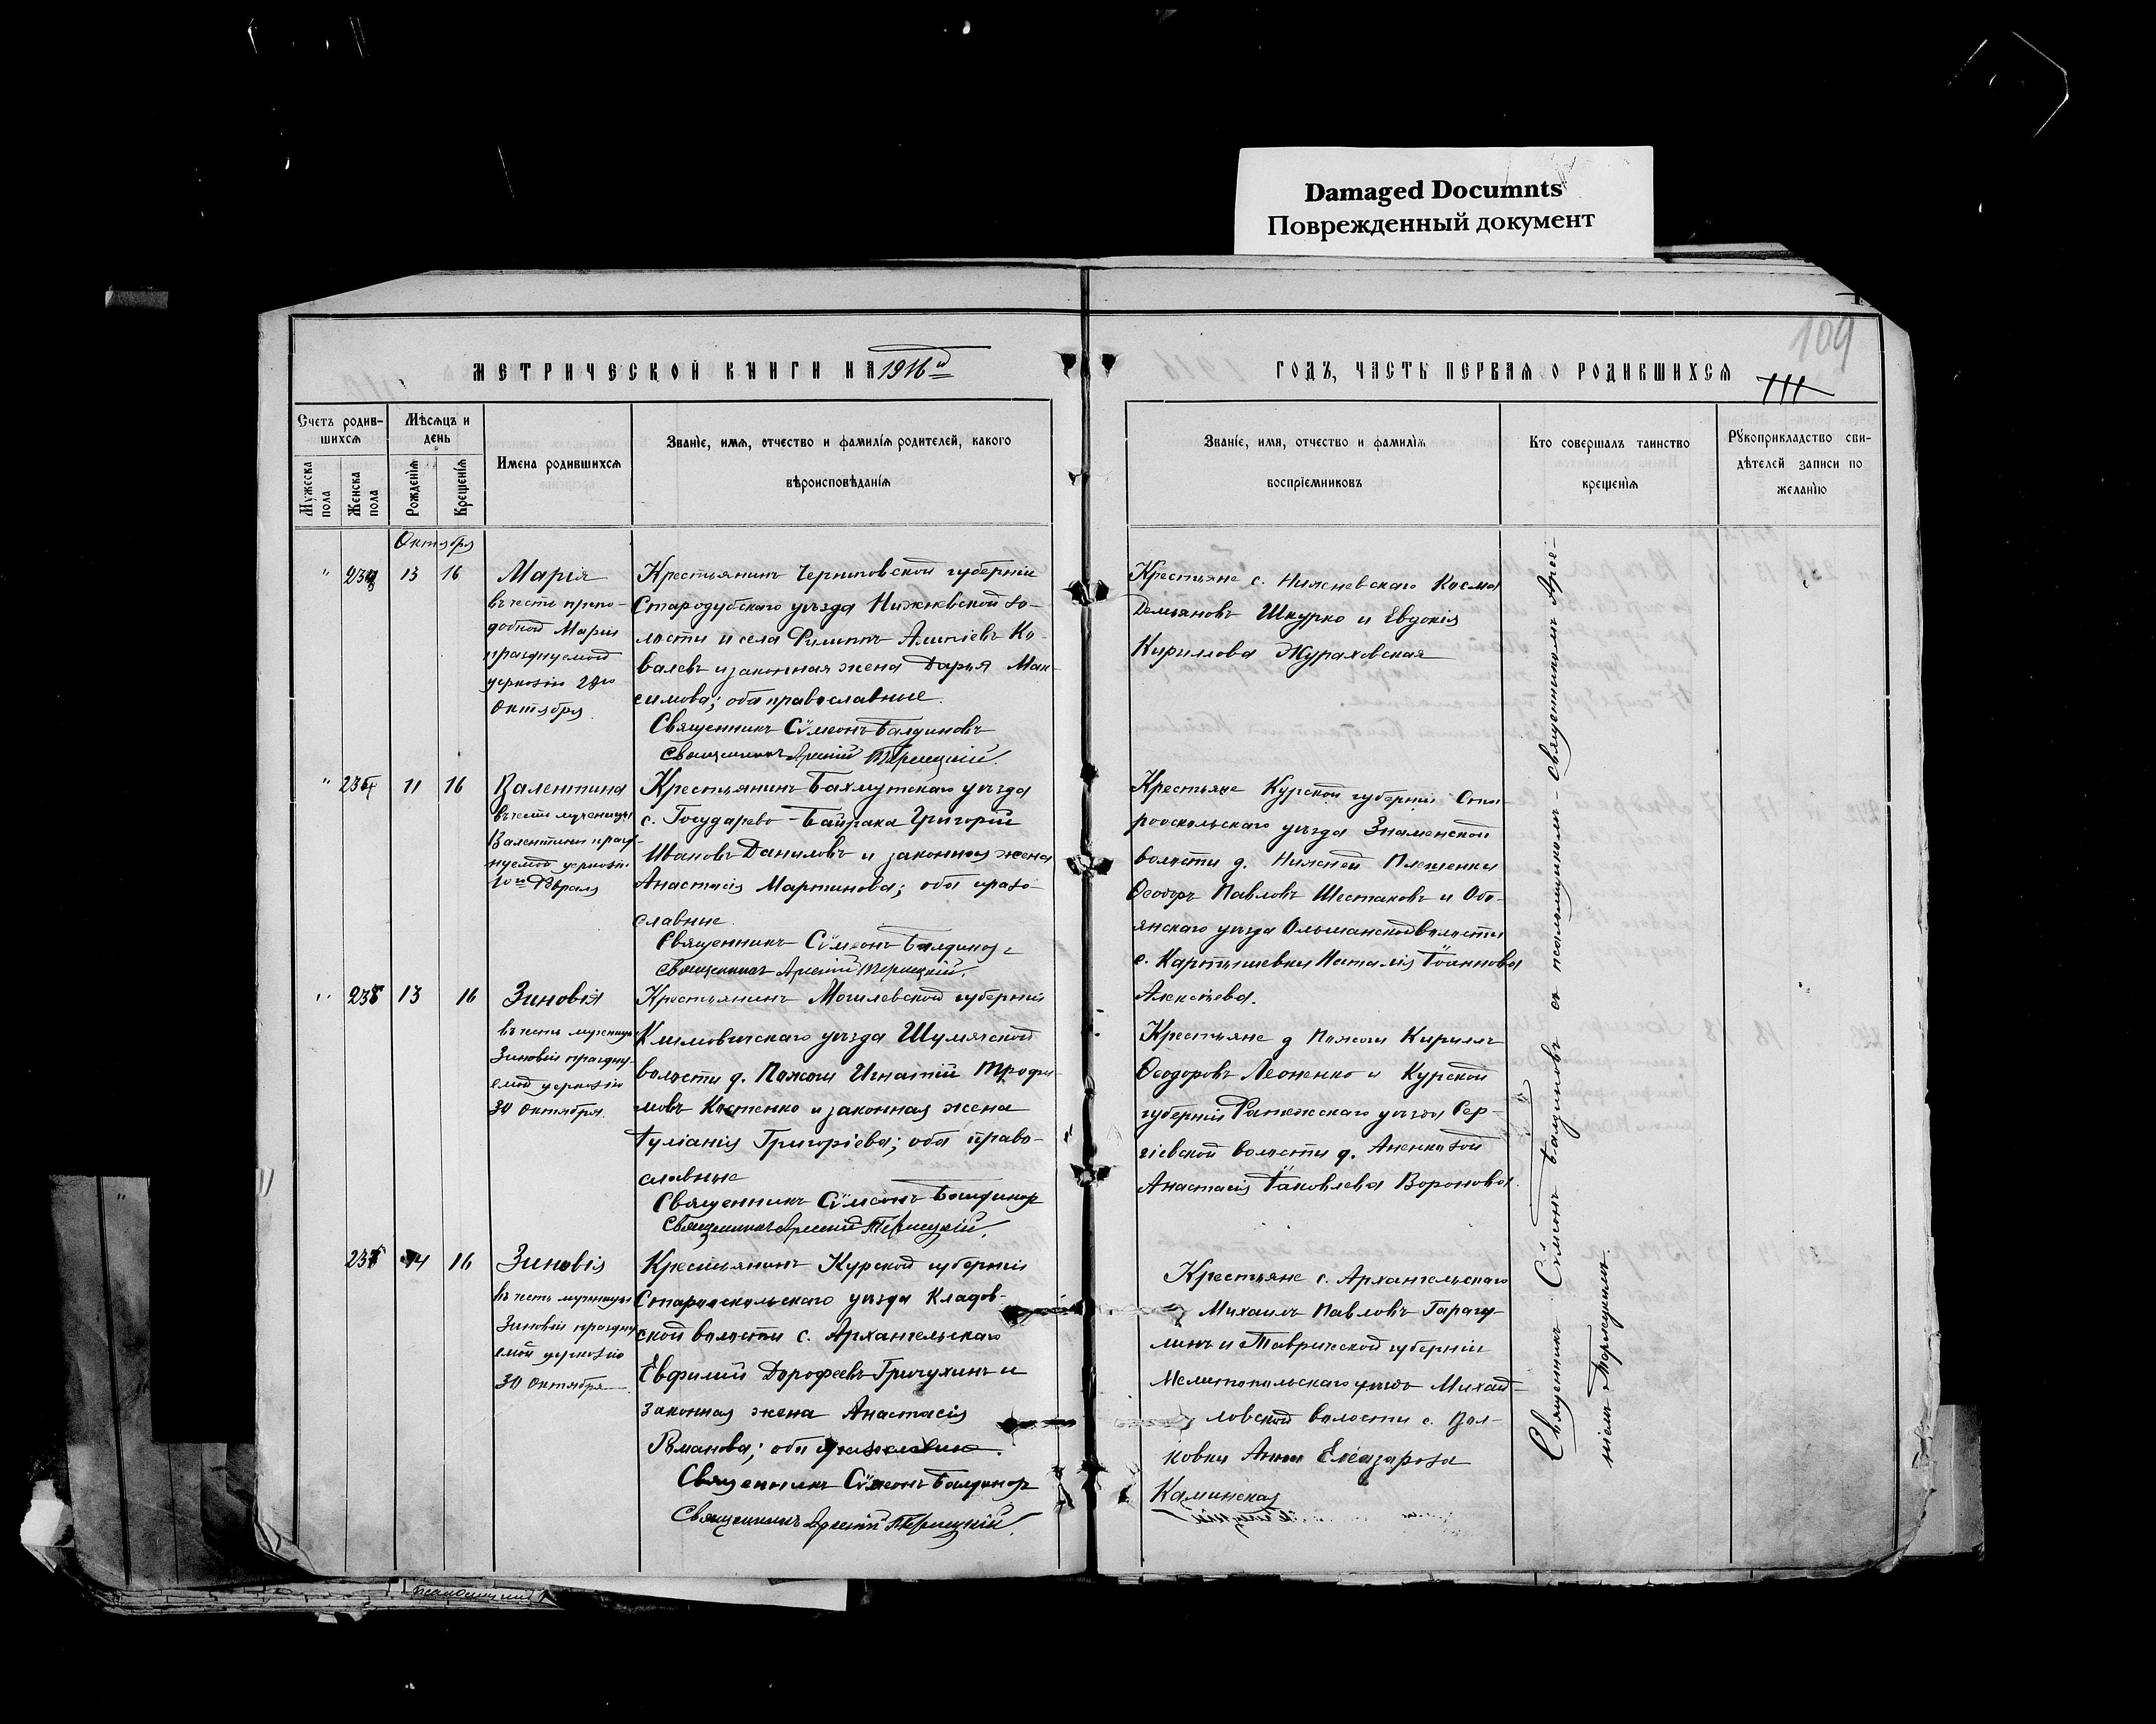 Damaged Documnts
Поврежденный документ
109
МЕТРИЧЕСКОЙ КНИГИ НА 1916й
ГОДЪ, ЧАСТЬ ПЕРВАЯ О РОДИВШИХСЯ
III
Счетъ родив-
шихся
Мужеска
пола
Женска
пола
Мѣсяцъ и
день
Рожденія
Крещенія
Имена родившихся
Званіе, имя, отчество и фамилія родителей, какого
вѣроисповѣданія
Званіе, имя, отчество и фамилія
воспріемниковъ
Кто совершалъ таинство
крещенія
Рукоприкладство сви-
дѣтелей записи по
желанію
Октября
" 13 16
Марія
въ честь препо-
добной Маріи
празднуемой
церковію
октября
Крестьянинъ Черниговской губерніи
Стародубскаго уѣзда Нижневской во-
лости и села Филиппъ Алипіевъ Ко-
валевъ и законная жена Дарья Мак-
симова; оба православные.
Священникъ Сѵмеонъ Балдиновъ
Священникъ Арсеній
Крестьяне с. Нижневскаго Косма
Демьяновъ Шкурко и Евдокія
Кириллова Жураховская
" 11 16
Валентина
въ честь мученицы
Валентины празд-
нуемой церковію
10го Февраля
Крестьянинъ Бахмутскаго уѣзда
с. Государево-Байрака Григорій
Ивановъ Даниловъ и законная жена
Анастасія Мартинова; оба право-
славные.
Священникъ Сѵмеонъ Балдиновъ
Священникъ Арсеній
Крестьяне Курской губерніи Ста-
рооскольскаго уѣзда Знаменской
волости д. Нижней Плешенки
Ѳеодоръ Павловъ Шестаковъ и Обо-
янскаго уѣзда Ольшанской волости
с. Картышевки Наталія Іоаннова
Алексѣева.
" 13 16
Зиновія
въ честь мученицы
Зиновіи праздну-
емой церковію
30 октября.
Крестьянинъ Могилевской губерніи
Климовичскаго уѣзда Шумячской
волости д. Пожоги Игнатій Трофи-
мовъ Костенко и законная жена
Іуліанія Григоріева; оба право-
славные
Священникъ Сѵмеонъ Балдиновъ
Священникъ Арсеній
Крестьяне д Пожоги Кириллъ
Ѳеодоровъ Леоненко и Курской
губерніи уѣзда Сер-
гіевской волости д. Аненковой
Анастасія Іаковлева Воронова.
14 16
Зиновія
въ честь мученицы
Зиновіи праздну-
емой церковію
30 октября
Крестьянинъ Курской губерніи
Старооскольскаго уѣзда Кладов-
ской волости с. Архангельскаго
Евфимій Дорофеевъ Гричухинъ и
законная жена Анастасія
Романова; оба православные.
Священникъ Сѵмеонъ Балдиновъ
Священникъ Арсеній
Крестьяне с. Архангельскаго
Михаилъ Павловъ Гарагу-
линъ и Таврической губерніи
Мелитопольскаго уѣзда Михай-
ловской волости с. Вол-
ковки Анна Елеазарова
Каминская
Священникъ Сѵмеонъ Балдиновъ съ псаломщикомъ - священникомъ Арсе-
ніемъ